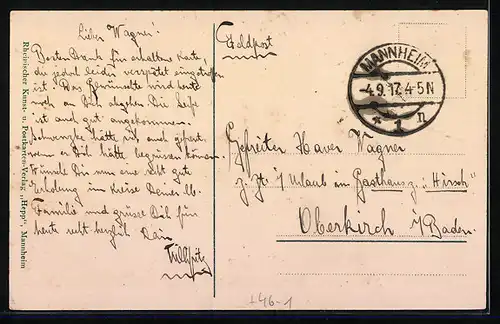 Lieber Wagner!
Besten Dank für erhaltene Karte,
die jedoch leider verspätet eingetroffen
ist. Das Gewünschte wird heute
noch an Dich abgehen. Die Seife
ist auch gut angekommen.
hätte ich auch gefreut,
wenn er Dich hätte begrüssen können.
Wünsche Dir nun eine recht gute
Erholung im Kreise Deiner lb.
Familie und grüsse Dich für
heute recht herzlich Dein
Feldpost
MANNHEIM
-4.9.17.4-5N
* 1 n
Gefreiter Xaver Wagner
z. Zt. i/ Urlaub im Gasthaus z. "Hirsch"
Oberkirch i/Baden.
Rheinischer Kunst- u. Postkarten-Verlag „Hepp“, Mannheim
+46-1